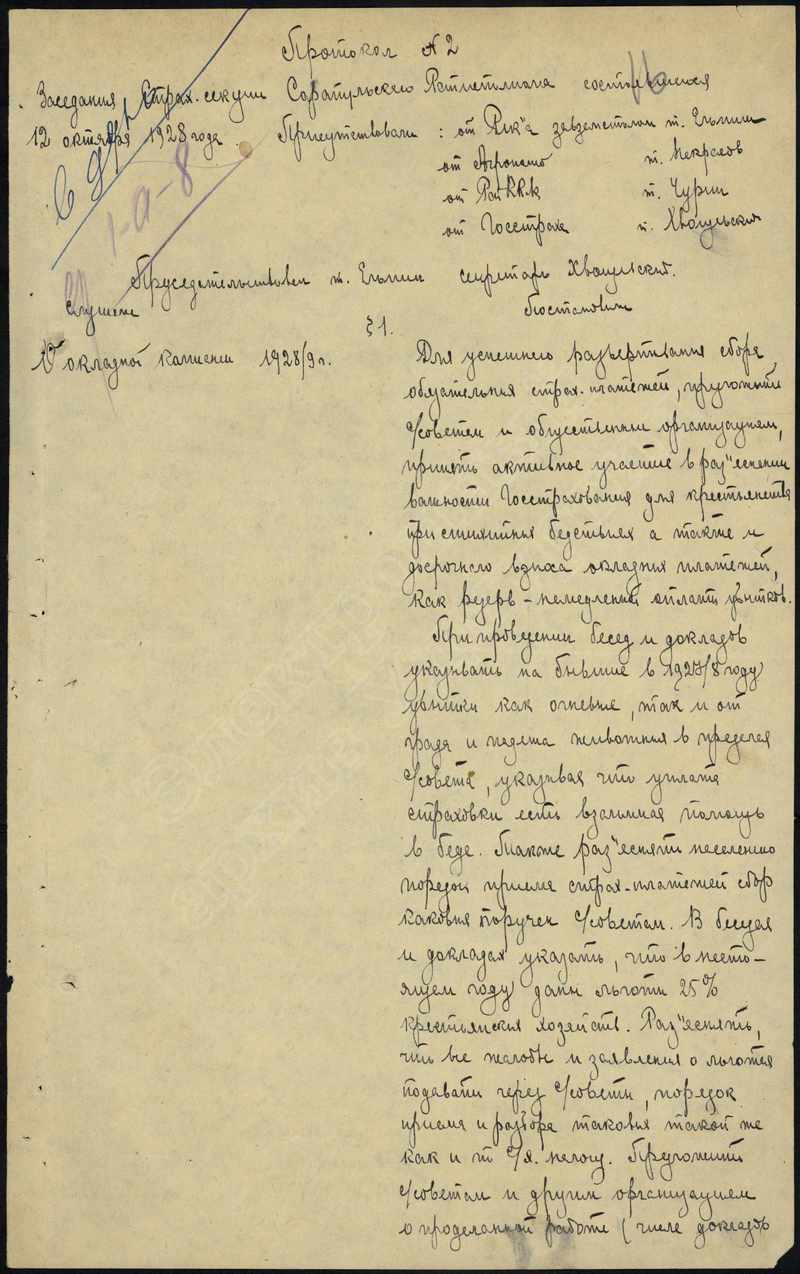 Протокол № 2
Заседания Страх. секции Сарапульского состоявшегося
12 октября 1928 года. Присутствовали: от Рик'а завземстолом т. Ельпин
от Агрономо т. Некрасов
от РайККК т. Чурин
от Госстраха т.
Председательствовал т. Ельпин секретарь
Слушали Постановили
§ 1.
О окладной кампании 1928/9 г. Для успешного развертывания сбора
обязательных страх. платежей, предложить
с/советам и общественным организациям,
принять активное участие в раз"яснении
важности Госстрахования для крестьянства
при стихийных бедствиях а также и
досрочного взноса окладных платежей,
как резерв – немедленной оплаты убытков.
При проведении бесед и докладов
указывать на бывшие в 1927/8 году
убытки как огневые, так и от
града и падежа животных в пределах
с/совета, указывая что уплата
страховки есть взаимная помощь
в беде. Также раз"яснять населению
порядок приема страх-платежей сбор
каковых поручен с/советам. В беседах
и докладах указать, что в насто-
ящем году даны льготы 25%
крестьянских хозяйств. Раз"яснять,
что все жалобы и заявления о льготах
подавать через с/советы, порядок
приема и разбора таковых такой же
как и по с/х. налогу. Предложить
с/советам и другим организациям
о проделанной работе (числе докладов